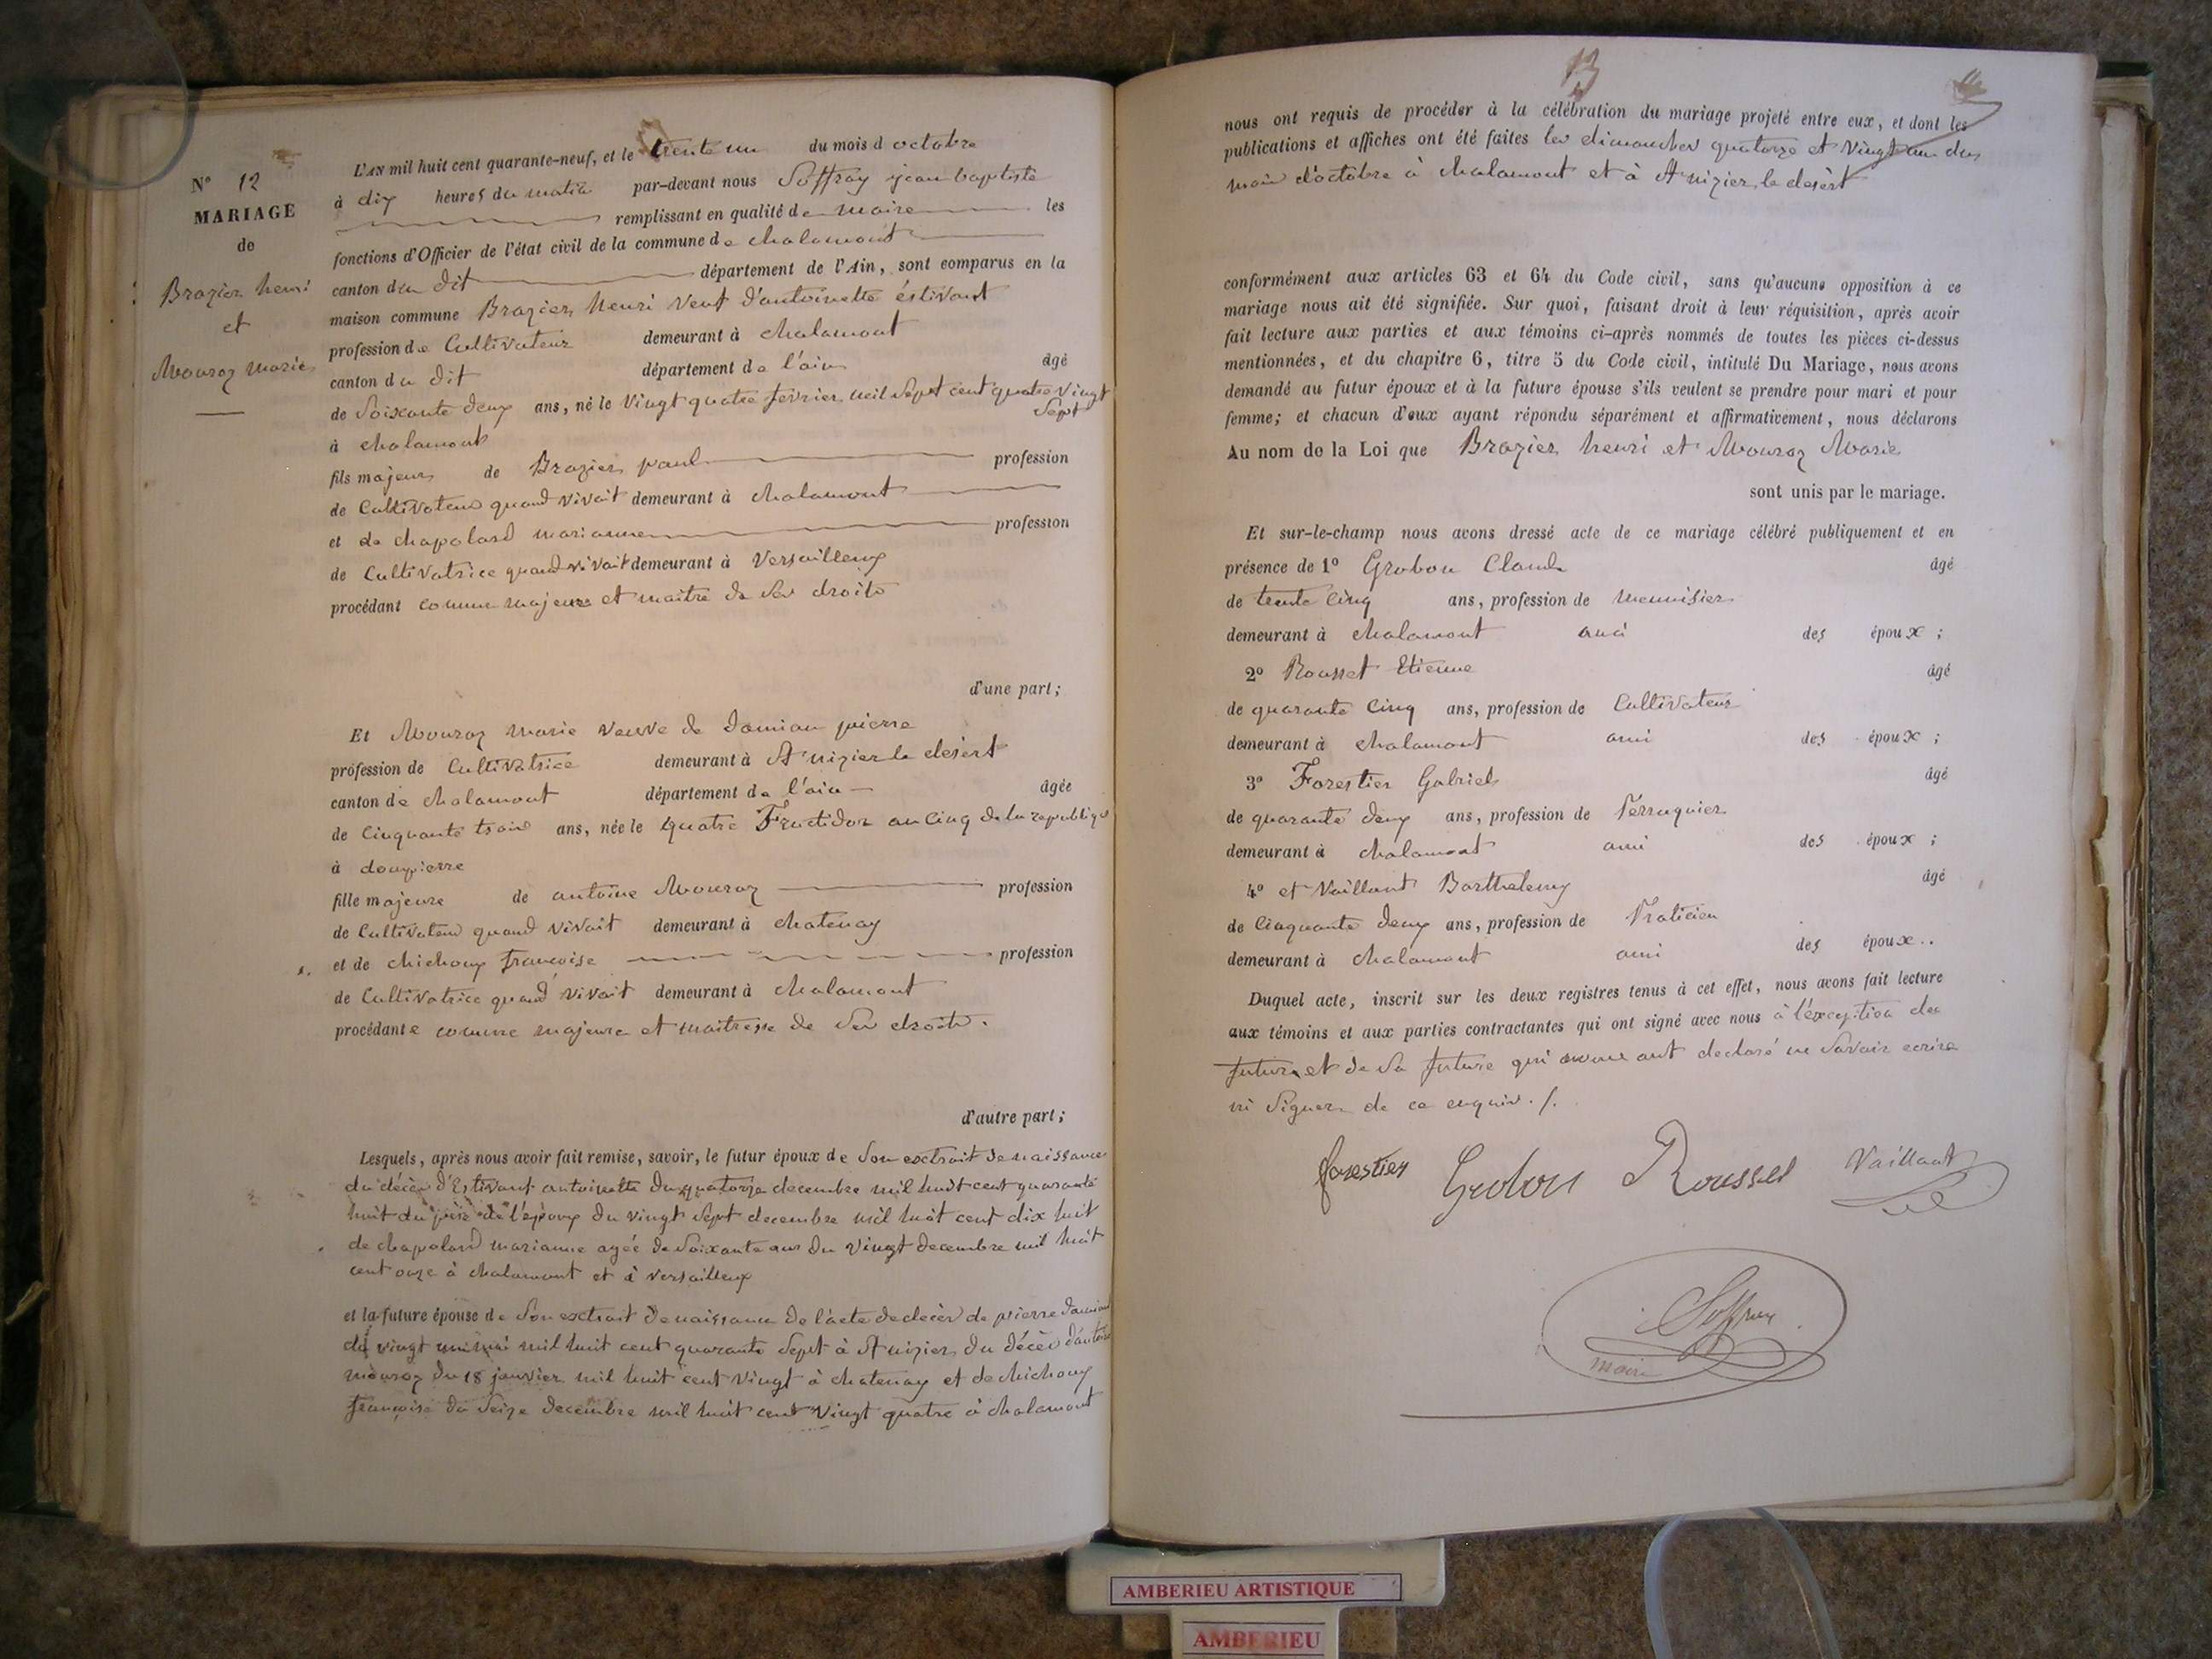 N° 12
MARIAGE
de
Brazier henri
et
Mouroz marie
L'AN mil huit cent quarante-neuf, et le trente un du mois d octobre
à dix heures du matin par-devant nous Soffray jean baptiste
remplissant en qualité de maire les
fonctions d'Officier de l'état civil de la commune de chalamont
canton du dit département de l'Ain, sont comparus en la
maison commune Brazier henri veuf d'antoinette éstivant
profession de Cultivateur demeurant à chalamont
canton du dit département de l'ain âgé
de Soixante deux ans, né le vingt quatre fevrier mil Sept cent quatre vingt
Sept
à chalamont
fils majeur de Brazier paul profession
de Cultivateur quand vivait demeurant à chalamont
et de chapolard marianne profession
de Cultivatrice quand vivait demeurant à Versailleux
procédant comme majeur et maitre de Ses droits
d'une part;
Et Mouroz marie veuve de Damian pierre
profession de Cultivatrice demeurant à St nizier le désert
canton de chalamont département de l'ain âgée
de Cinquante trois ans, née le quatre Fructidor an Cinq de la republique
à dompierre
fille majeure de antoine Mouroz profession
de Cultivateur quand vivait demeurant à chatenay
et de chichoux françoise profession
de Cultivatrice quand vivait demeurant à chalamont
procédante comme majeure et maitresse de Ses droits.
d'autre part;
Lesquels, après nous avoir fait remise, savoir, le futur époux de Son extrait de naissance
du décès d'Estivant antoinette du quatorze decembre mil huit cent quarante
huit du père de l'époux du vingt Sept decembre mil huit cent dix huit
de chapolard marianne agée de Soixante ans du vingt decembre mil huit
cent onze à chalamont et à versailleux
et la future épouse de Son extrait de naissance de l'acte de decès de pierre damian
du vingt un mai mil huit cent quarante Sept à St nizier, du décès d'antoine
mouroz du 18 janvier mil huit cent vingt à chatenay et de chichoux
françoise du Seize decembre mil huit cent vingt quatre à chalamont
13
nous ont requis de procéder à la célébration du mariage projeté entre eux, et dont les
publications et affiches ont été faites les dimanches quatorze et vingt un du
mois d'octobre à chalamont et à St nizier le desert
conformément aux articles 63 et 64 du Code civil, sans qu'aucune opposition à ce
mariage nous ait été signifiée. Sur quoi, faisant droit à leur réquisition, après avoir
fait lecture aux parties et aux témoins ci-après nommés de toutes les pièces ci-dessus
mentionnées, et du chapitre 6, titre 5 du Code civil, intitulé Du Mariage, nous avons
demandé au futur époux et à la future épouse s'ils veulent se prendre pour mari et pour
femme; et chacun d'eux ayant répondu séparément et affirmativement, nous déclarons
Au nom de la Loi que Brazier henri et Mouroz Marie
sont unis par le mariage.
Et sur-le-champ nous avons dressé acte de ce mariage célébré publiquement et en
présence de 1° Grobon Claude âgé
de trente cinq ans, profession de Menuisier
demeurant à chalamont ami des époux ;
2° Rousset Etienne âgé
de quarante Cinq ans, profession de Cultivateur
demeurant à chalamont ami des époux ;
3° Forestier Gabriel âgé
de quarante deux ans, profession de Perruquier
demeurant à chalamont ami des époux ;
4° et Vaillant Barthelemy âgé
de Cinquante deux ans, profession de Praticien
demeurant à chalamont ami des époux..
Duquel acte, inscrit sur les deux registres tenus à cet effet, nous avons fait lecture
aux témoins et aux parties contractantes qui ont signé avec nous à l'éxception du
futur et de Sa future qui ont declaré ne Savoir ecrire
ni Signer de ce enquis ./.
forestier Grobon Rousset Vaillant
Soffray
maire
AMBERIEU ARTISTIQUE
AMBERIEU